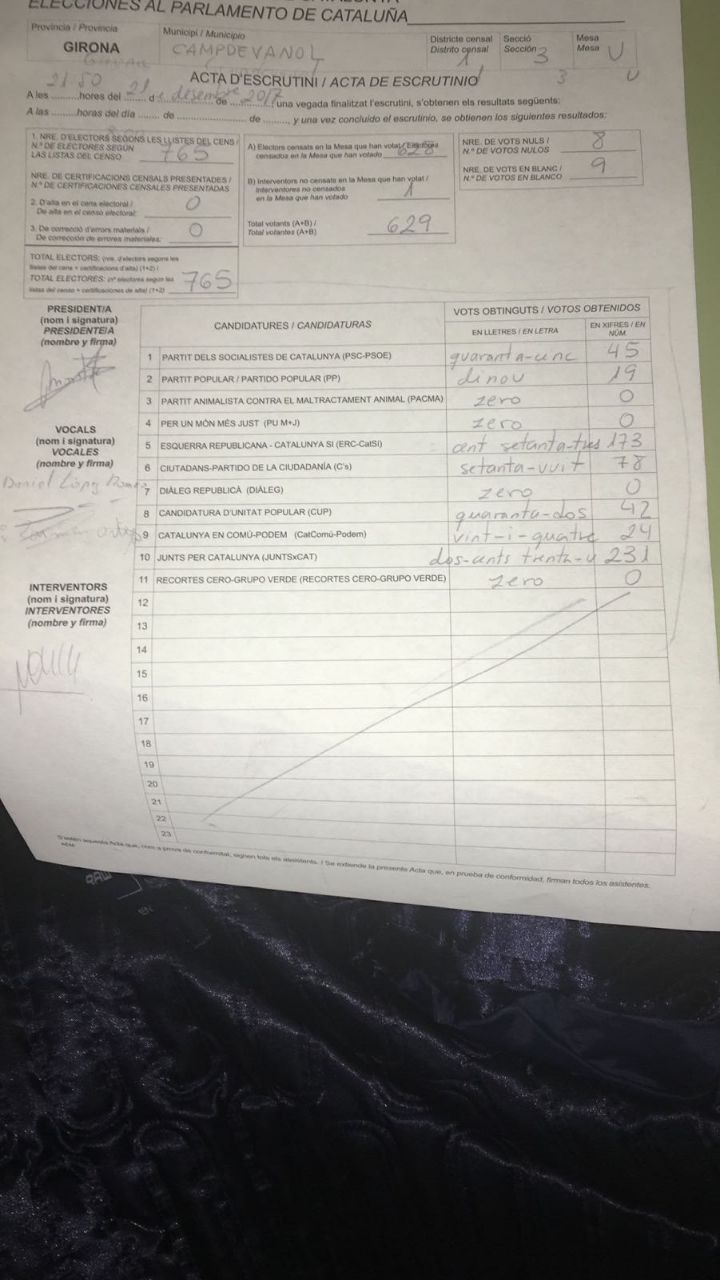 ELECCIONES AL PARLAMENTO DE CATALUÑA
Província / Provincia
GIRONA
Municipi / Municipio
CAMPDEVANOL
Districte censal
Distrito censal
1
Secció
Sección
3
Mesa
Mesa
U
ACTA D'ESCRUTINI / ACTA DE ESCRUTINIO
3
U
21 50 21 de desembre 2017
A les ..........hores del ....... d ................ de .........., una vegada finalitzat l'escrutini, s'obtenen els resultats següents:
A las .........horas del día ....... de ................ de ........., y una vez concluido el escrutinio, se obtienen los siguientes resultados:
1. NRE. D'ELECTORS SEGONS LES LLISTES DEL CENS /
N.º DE ELECTORES SEGÚN
LAS LISTAS DEL CENSO
765
NRE. DE CERTIFICACIONS CENSALS PRESENTADES /
N.º DE CERTIFICACIONES CENSALES PRESENTADAS
2. D'alta en el cens electoral /
De alta en el censo electoral:
0
3. De correcció d'errors materials /
De corrección de errores materiales:
0
TOTAL ELECTORS: (nre. d'electors segons les
llistes del cens + certificacions d'alta) (1+2) /
TOTAL ELECTORES: (nº electores según las
listas del censo + certificaciones de alta) (1+2)
765
A) Electors censats en la Mesa que han votat / Electores
censados en la Mesa que han votado
628
B) Interventors no censats en la Mesa que han votat /
Interventores no censados
en la Mesa que han votado
1
Total votants (A+B) /
Total votantes (A+B)
629
NRE. DE VOTS NULS /
N.º DE VOTOS NULOS
8
NRE. DE VOTS EN BLANC /
N.º DE VOTOS EN BLANCO
9
PRESIDENT/A
(nom i signatura)
PRESIDENTE/A
(nombre y firma)
VOCALS
(nom i signatura)
VOCALES
(nombre y firma)
Daniel López
INTERVENTORS
(nom i signatura)
INTERVENTORES
(nombre y firma)
CANDIDATURES / CANDIDATURAS
VOTS OBTINGUTS / VOTOS OBTENIDOS
EN LLETRES / EN LETRA
EN XIFRES / EN
NÚM.
1 PARTIT DELS SOCIALISTES DE CATALUNYA (PSC-PSOE) quaranta-cinc 45
2 PARTIT POPULAR / PARTIDO POPULAR (PP) dinou 19
3 PARTIT ANIMALISTA CONTRA EL MALTRACTAMENT ANIMAL (PACMA) zero 0
4 PER UN MÓN MÉS JUST (PU M+J) zero 0
5 ESQUERRA REPUBLICANA - CATALUNYA SÍ (ERC-CatSí) cent setanta-tres 173
6 CIUTADANS-PARTIDO DE LA CIUDADANÍA (C's) setanta-vuit 78
7 DIÀLEG REPUBLICÀ (DIÀLEG) zero 0
8 CANDIDATURA D'UNITAT POPULAR (CUP) quaranta-dos 42
9 CATALUNYA EN COMÚ-PODEM (CatComú-Podem) vint-i-quatre 24
10 JUNTS PER CATALUNYA (JUNTSxCAT) dos-cents trenta-u 231
11 RECORTES CERO-GRUPO VERDE (RECORTES CERO-GRUPO VERDE) zero 0
12
13
14
15
16
17
18
19
20
21
22
23
S'estén aquesta Acta que, com a prova de conformitat, signen tots els assistents. / Se extiende la presente Acta que, en prueba de conformidad, firman todos los asistentes.